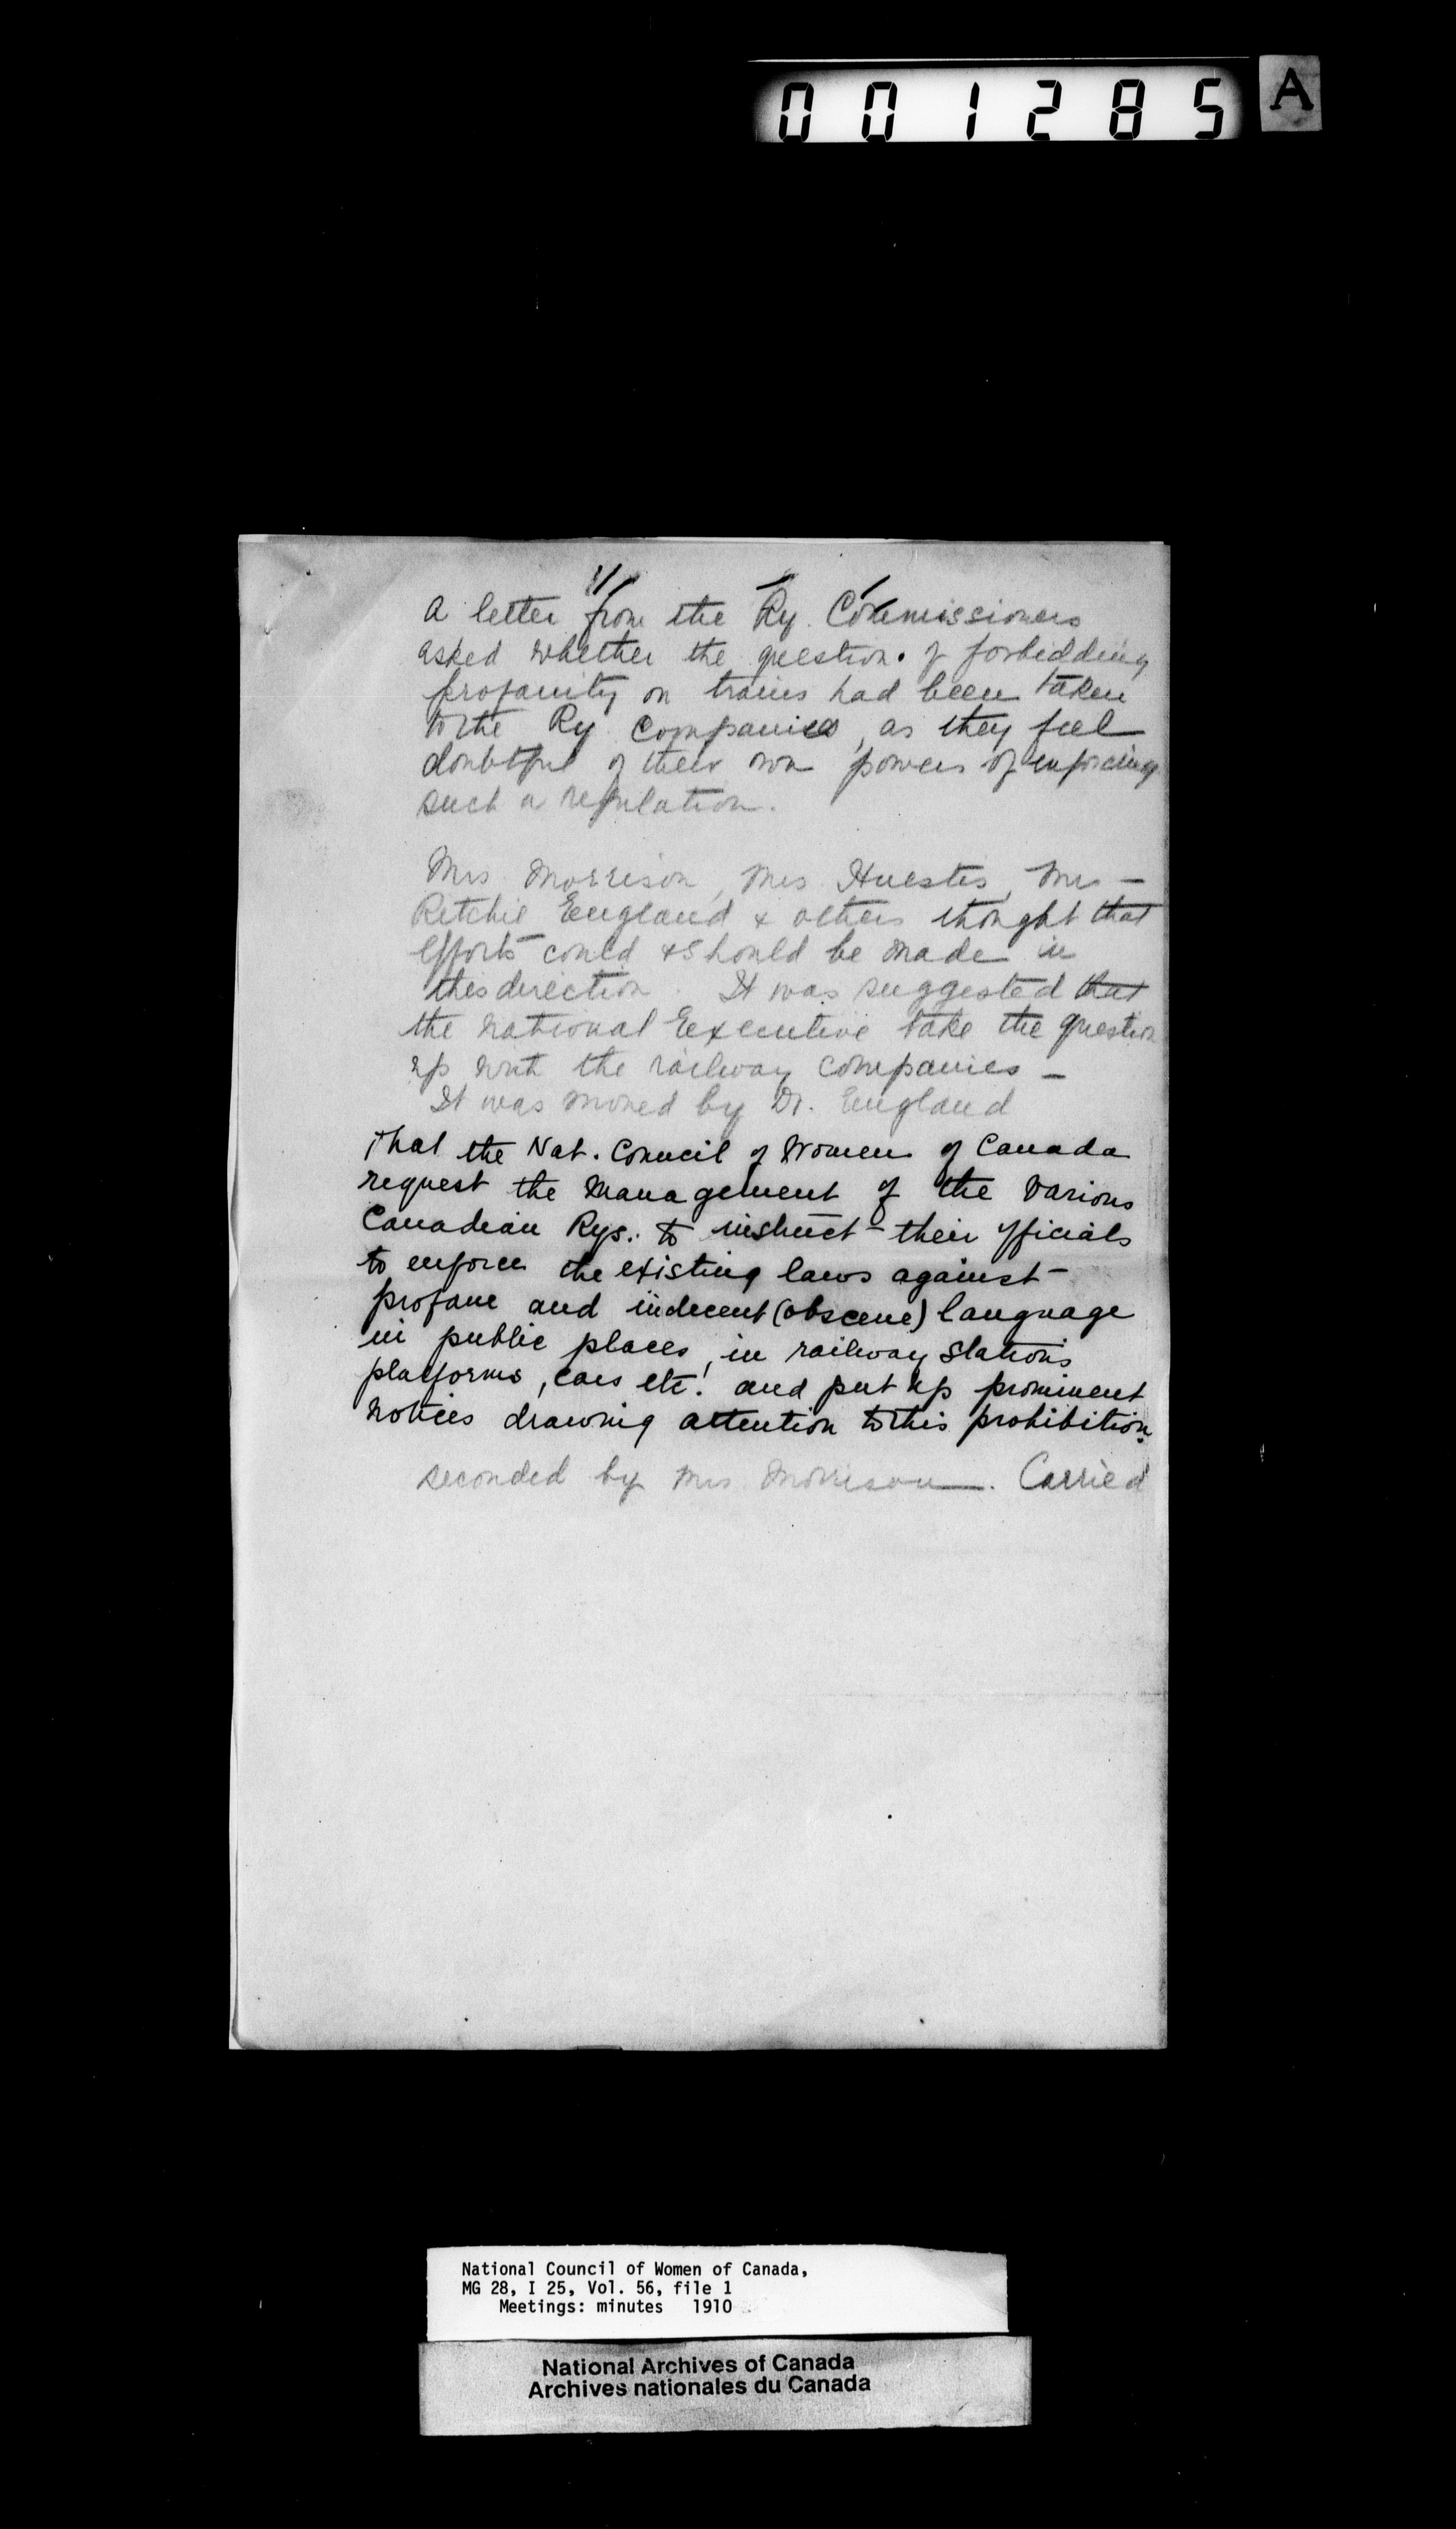 001285 A
A letter from the Ry. Commissioners
asked whether the question of forbidding
profanity on trains had been taken
to the Ry Companies, as they feel
doubtful of their own powers of enforcing
such a regulation.
Mrs Morrison, Mrs Huestis, Mrs —
Ritchie England & others thought that
efforts could & should be made in
this direction. It was suggested that
the National Executive take the question
up with the railway companies —
It was moved by Dr. England
That the Nat. Council of Women of Canada
request the management of the various
Canadian Rys. to instruct their officials
to enforce the existing laws against
profane and indecent (obscene) language
in public places, in railway stations
platforms, cars etc. and put up prominent
notices drawing attention to this prohibition.
seconded by Mrs Morrison. Carried
National Council of Women of Canada,
MG 28, I 25, Vol. 56, file 1
Meetings: minutes 1910
National Archives of Canada
Archives nationales du Canada